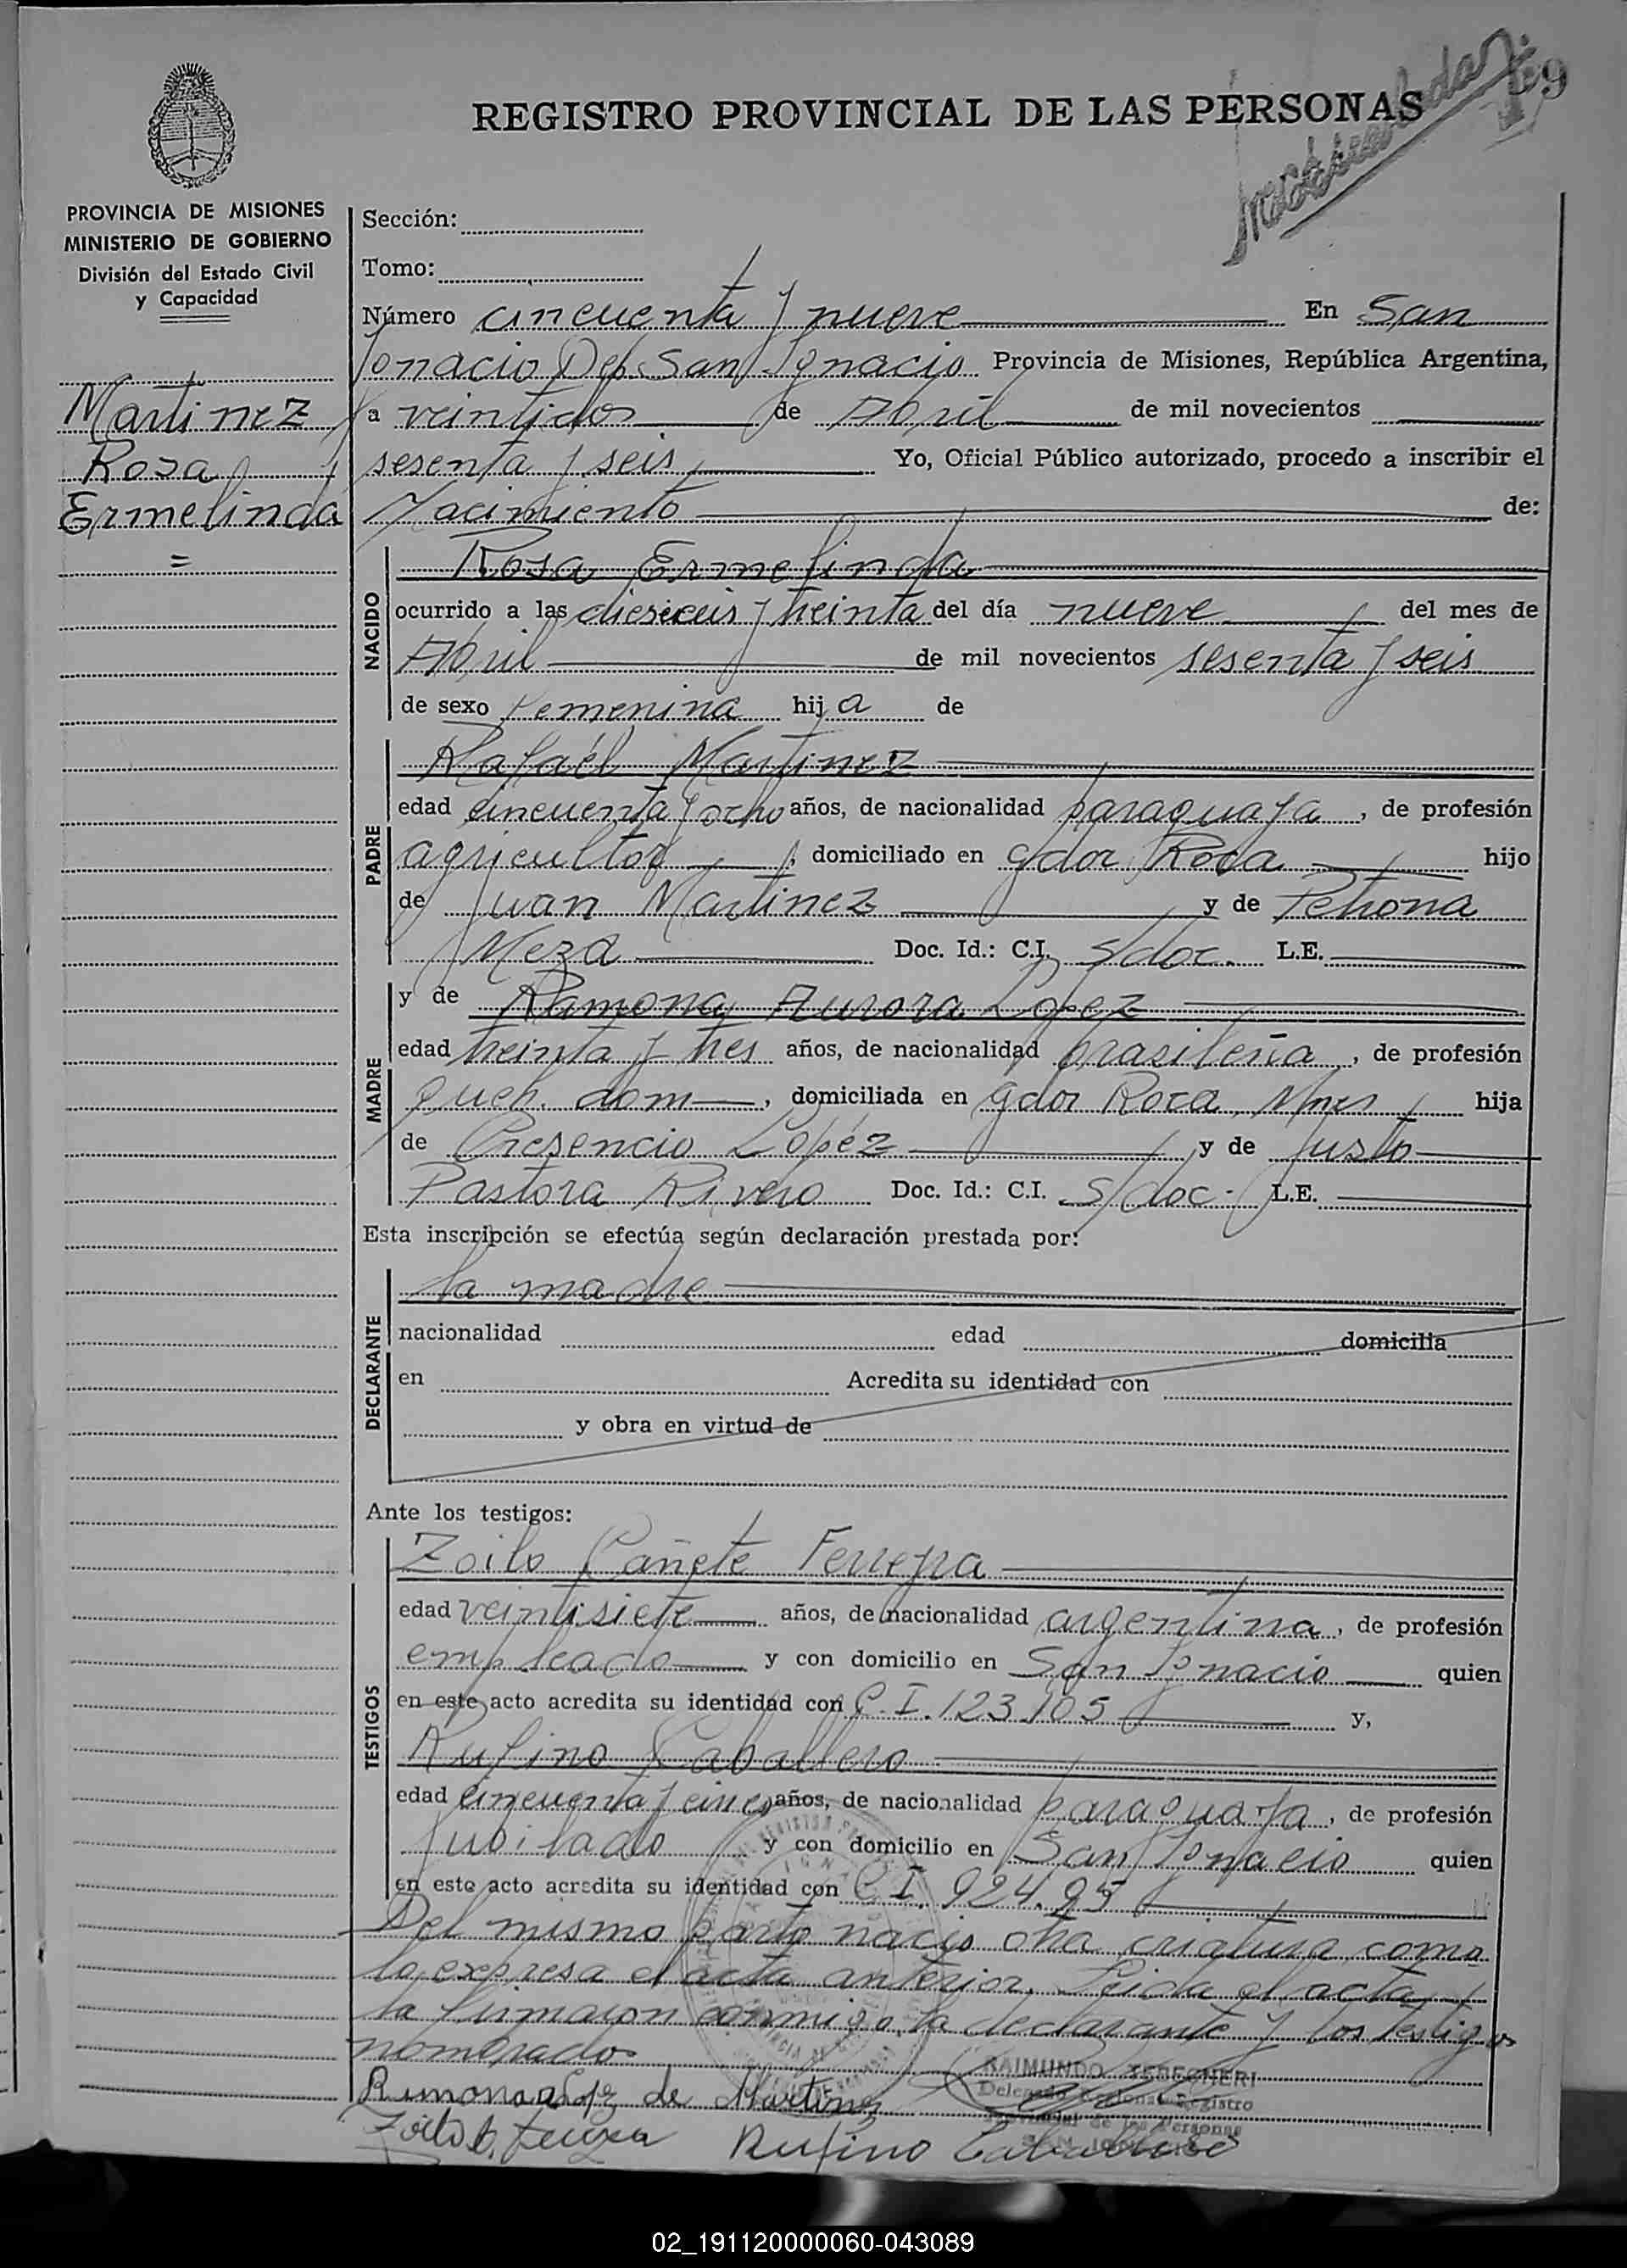 REGISTRO PROVINCIAL DE LAS PERSONAS
PROVINCIA DE MISIONES
MINISTERIO DE GOBIERNO
División del Estado Civil
y Capacidad
Martinez
Rosa
Ermelinda
=
Sección:
Tomo:
Número cincuenta y nueve En San
Ignacio Dep. San Ignacio Provincia de Misiones, República Argentina,
a veintidos de Abril de mil novecientos
sesenta y seis Yo, Oficial Público autorizado, procedo a inscribir el
Nacimiento de:
NACIDO
Rosa Ermelinda
ocurrido a las y treinta del día nueve del mes de
Abril de mil novecientos sesenta y seis
de sexo Femenina hija de
PADRE
Rafaél Martinez
edad cincuenta y ocho años, de nacionalidad paraguaya, de profesión
agricultor, domiciliado en Gdor Roca hijo
de Juan Martinez y de Petrona
Meza Doc. Id.: C.I. s/doc. L.E.
MADRE
y de Ramona Aurora Lopez
edad treinta y tres años, de nacionalidad brasileña, de profesión
queh. dom, domiciliada en Gdor Roca, Mnes hija
de Cresencio Lopéz y de Justo
Pastora Rivero Doc. Id.: C.I. s/doc. L.E.
Esta inscripción se efectúa según declaración prestada por:
DECLARANTE
la madre
nacionalidad edad domicilia
en Acredita su identidad con
y obra en virtud de
Ante los testigos:
TESTIGOS
Zoilo Cañete Ferreyra
edad veintisiete años, de nacionalidad argentina, de profesión
empleado y con domicilio en San Ignacio quien
en este acto acredita su identidad con C.I. 123.105 y,
Rufino Caballero
edad cincuenta y cinco años, de nacionalidad paraguaya, de profesión
jubilado y con domicilio en San Ignacio quien
en este acto acredita su identidad con C.I. 924.95
Del mismo parto nacio otra criatura como
lo expresa el acta anterior. Leida el acta
la firmaron conmigo, la declarante y los testigos
nombrados
Ramona Lopez de Martinez
RAIMUNDO
Registro
Provincial de las Personas
Rufino Caballero
02_191120000060-043089